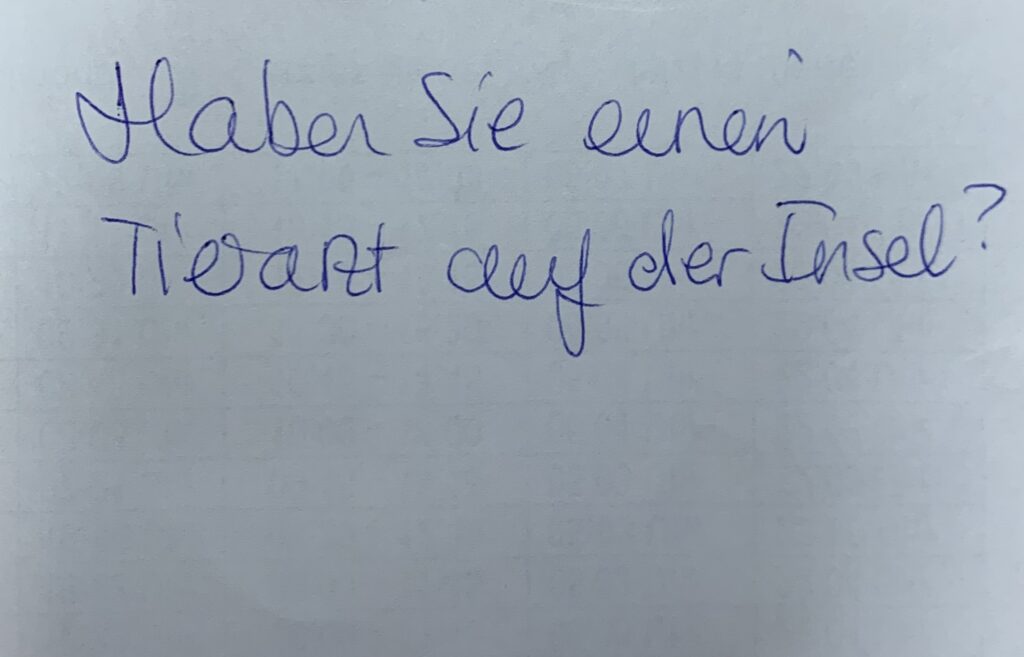 Haben Sie einen
Tierarzt auf der Insel?